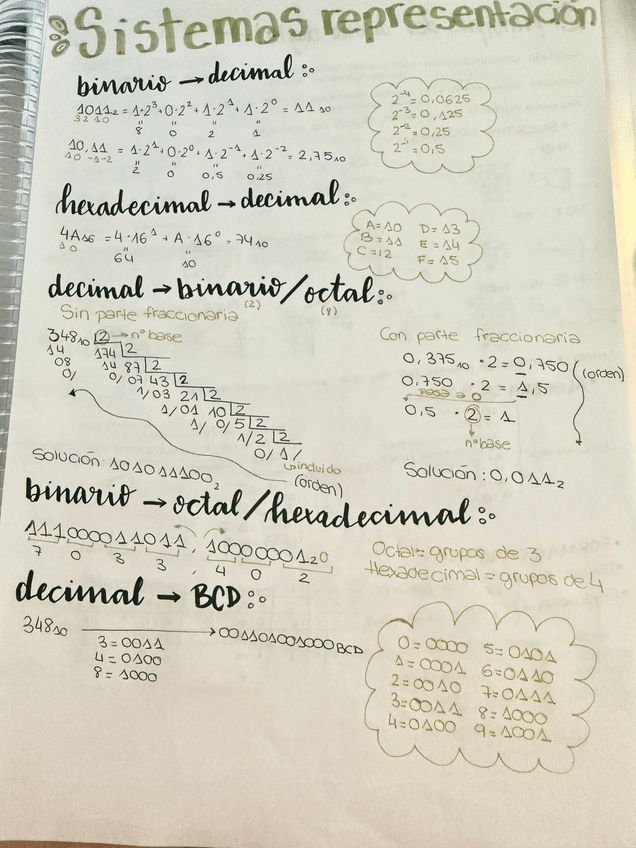 Sistemas representación
binario → decimal:
1011₂ = 1·2³+0·2²+1·2¹+1·2⁰ = 11₁₀
32 10
" " " "
8 0 2 1
10,11 = 1·2¹+0·2⁰+1·2⁻¹+1·2⁻² = 2,75₁₀
10 -1-2
" " " "
2 0 0,5 0.25
2⁻⁴=0,0625
2⁻³=0,125
2⁻²=0,25
2⁻¹=0,5
hexadecimal → decimal:
4A₁₆ = 4·16¹ + A·16⁰ = 74₁₀
10
" "
64 10
A=10 D=13
B=11 E=14
C=12 F=15
decimal → binario/octal:
(2) (8)
Sin parte fraccionaria
348₁₀ |2 → nº base
14 174 |2
08 14 87 |2
0/ 0/ 07 43 |2
1/ 03 21 |2
1/ 01 10 |2
1/ 0/ 5 |2
1/ 2 |2
0/ 1/
↳incluido
(orden)
Solución: 101011100₂
Con parte fraccionaria
0,375₁₀ ·2 = 0,750
(orden)
0,750 ·2 = 1,5
pasa a 0
0,5 · 2 = 1
nº base
Solución: 0,011₂
binario → octal/hexadecimal:
111000011011,1000000120
7 0 3 3 , 4 0 2
Octal = grupos de 3
Hexadecimal = grupos de 4
decimal → BCD:
348₁₀ → 001101001000 BCD
3 = 0011
4 = 0100
8 = 1000
0=0000 5=0101
1=0001 6=0110
2=0010 7=0111
3=0011 8=1000
4=0100 9=1001